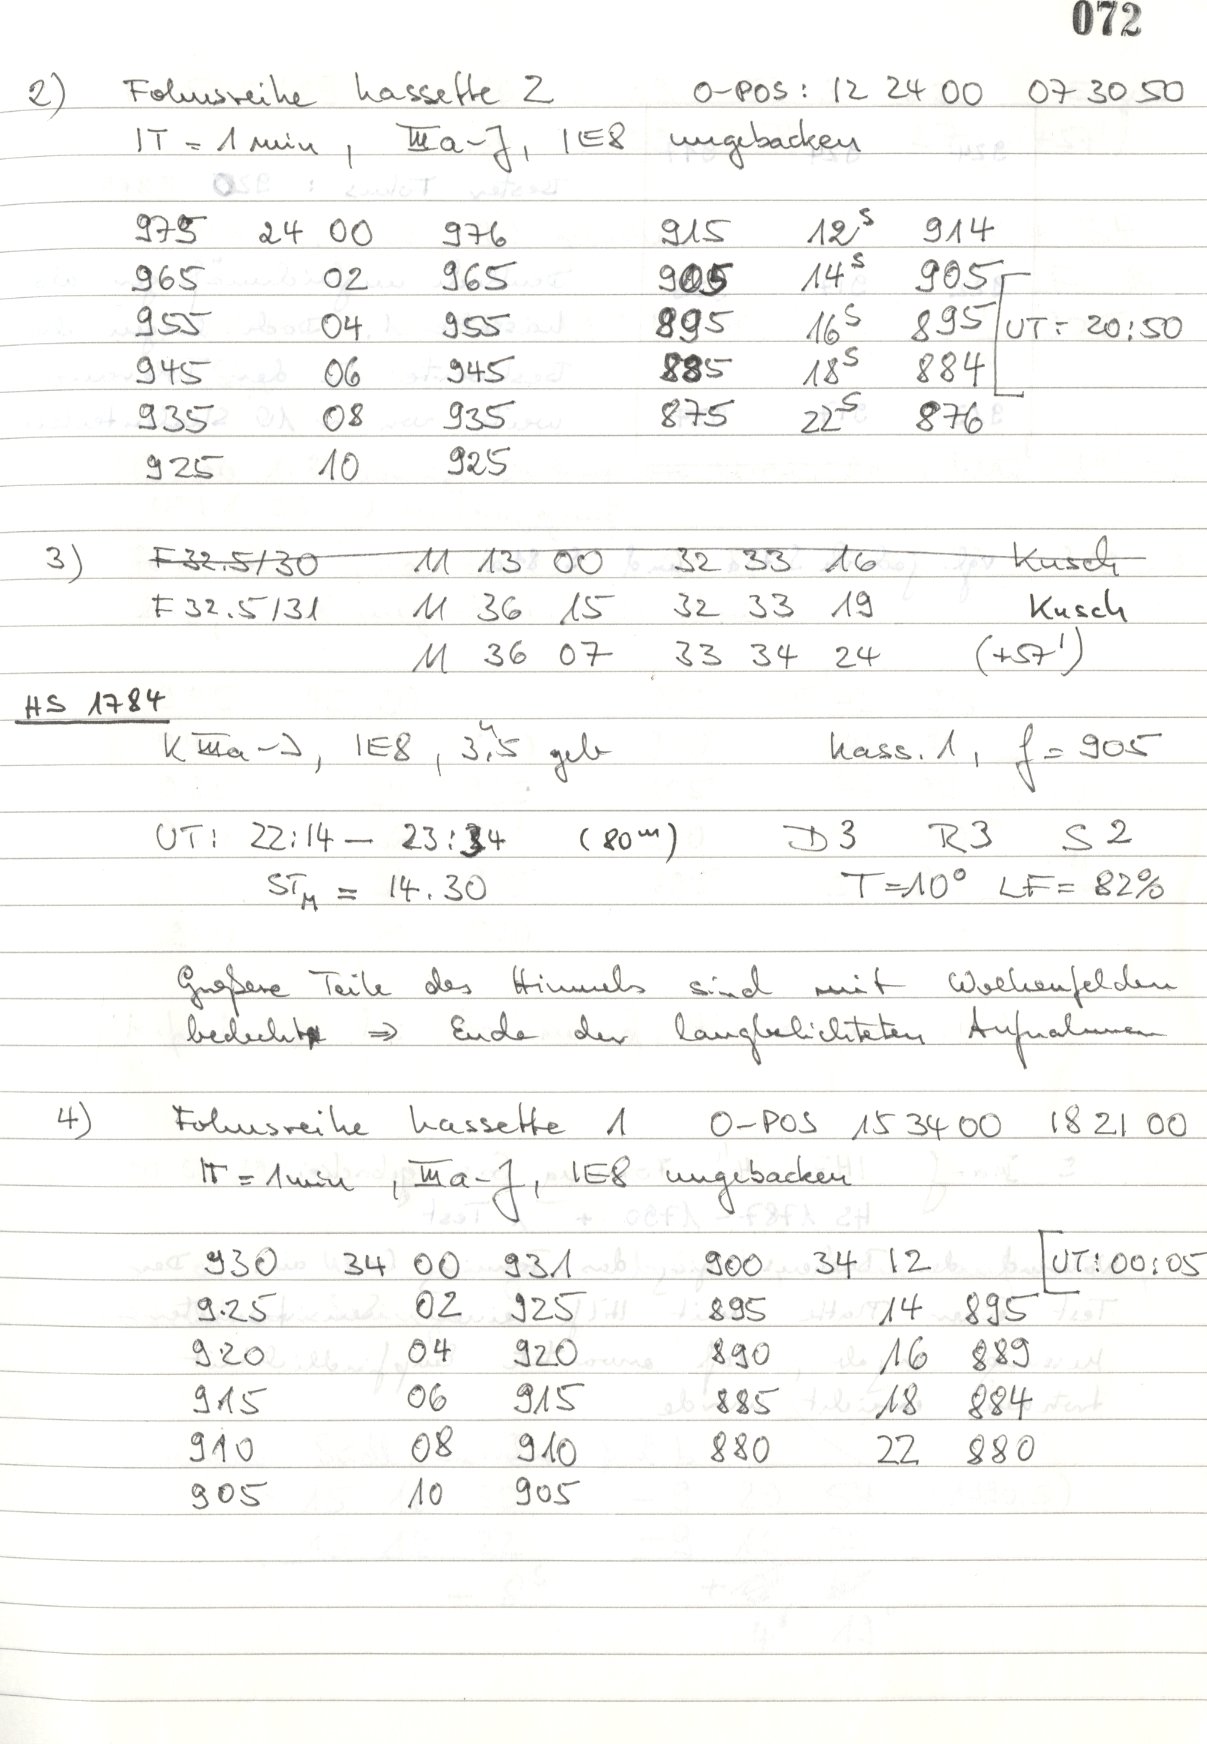 072
2) Fokusreihe Kassette 2 0-POS: 12 24 00 07 30 50
IT = 1 min, IIIa-J, IE8 ungebacken
975 24 00 976 915 12s 914
965 02 965 905 14s 905
955 04 955 895 16s 895 UT= 20:50
945 06 945 885 18s 884
935 08 935 875 22s 876
925 10 925
3) F 32.5/30 11 13 00 32 33 16 Kusch
F 32.5/31 11 36 15 32 33 19 Kusch
11 36 07 33 34 24 (+57')
HS 1784
K IIIa-J, IE8, 3h.5 geb Kass. 1, f = 905
UT: 22:14 – 23:34 (80m) D3 R3 S2
STM = 14.30 T=10° LF= 82%
Größere Teile des Himmels sind mit Wolkenfelden
bedeckt ⇒ Ende der langbelichteten Aufnahmen
4) Fokusreihe Kassette 1 0-POS 15 34 00 18 21 00
IT = 1min, IIIa-J, IE8 ungebacken
930 34 00 931 900 34 12 UT: 00:05
925 02 925 895 14 895
920 04 920 890 16 889
915 06 915 885 18 884
910 08 910 880 22 880
905 10 905